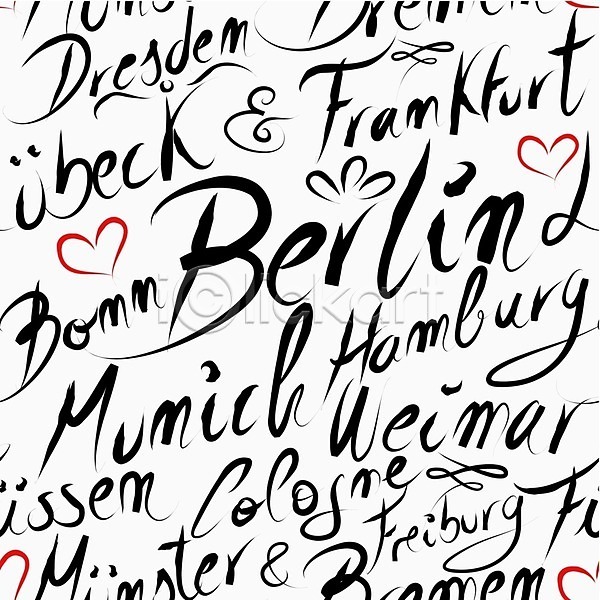 Dresden Bremen
übeck & Frankfurt
Berlin L
Bomm Hamburg
Munich Weimar
üssen Cologne Freiburg Fü
Münster & Bremen
iclickart